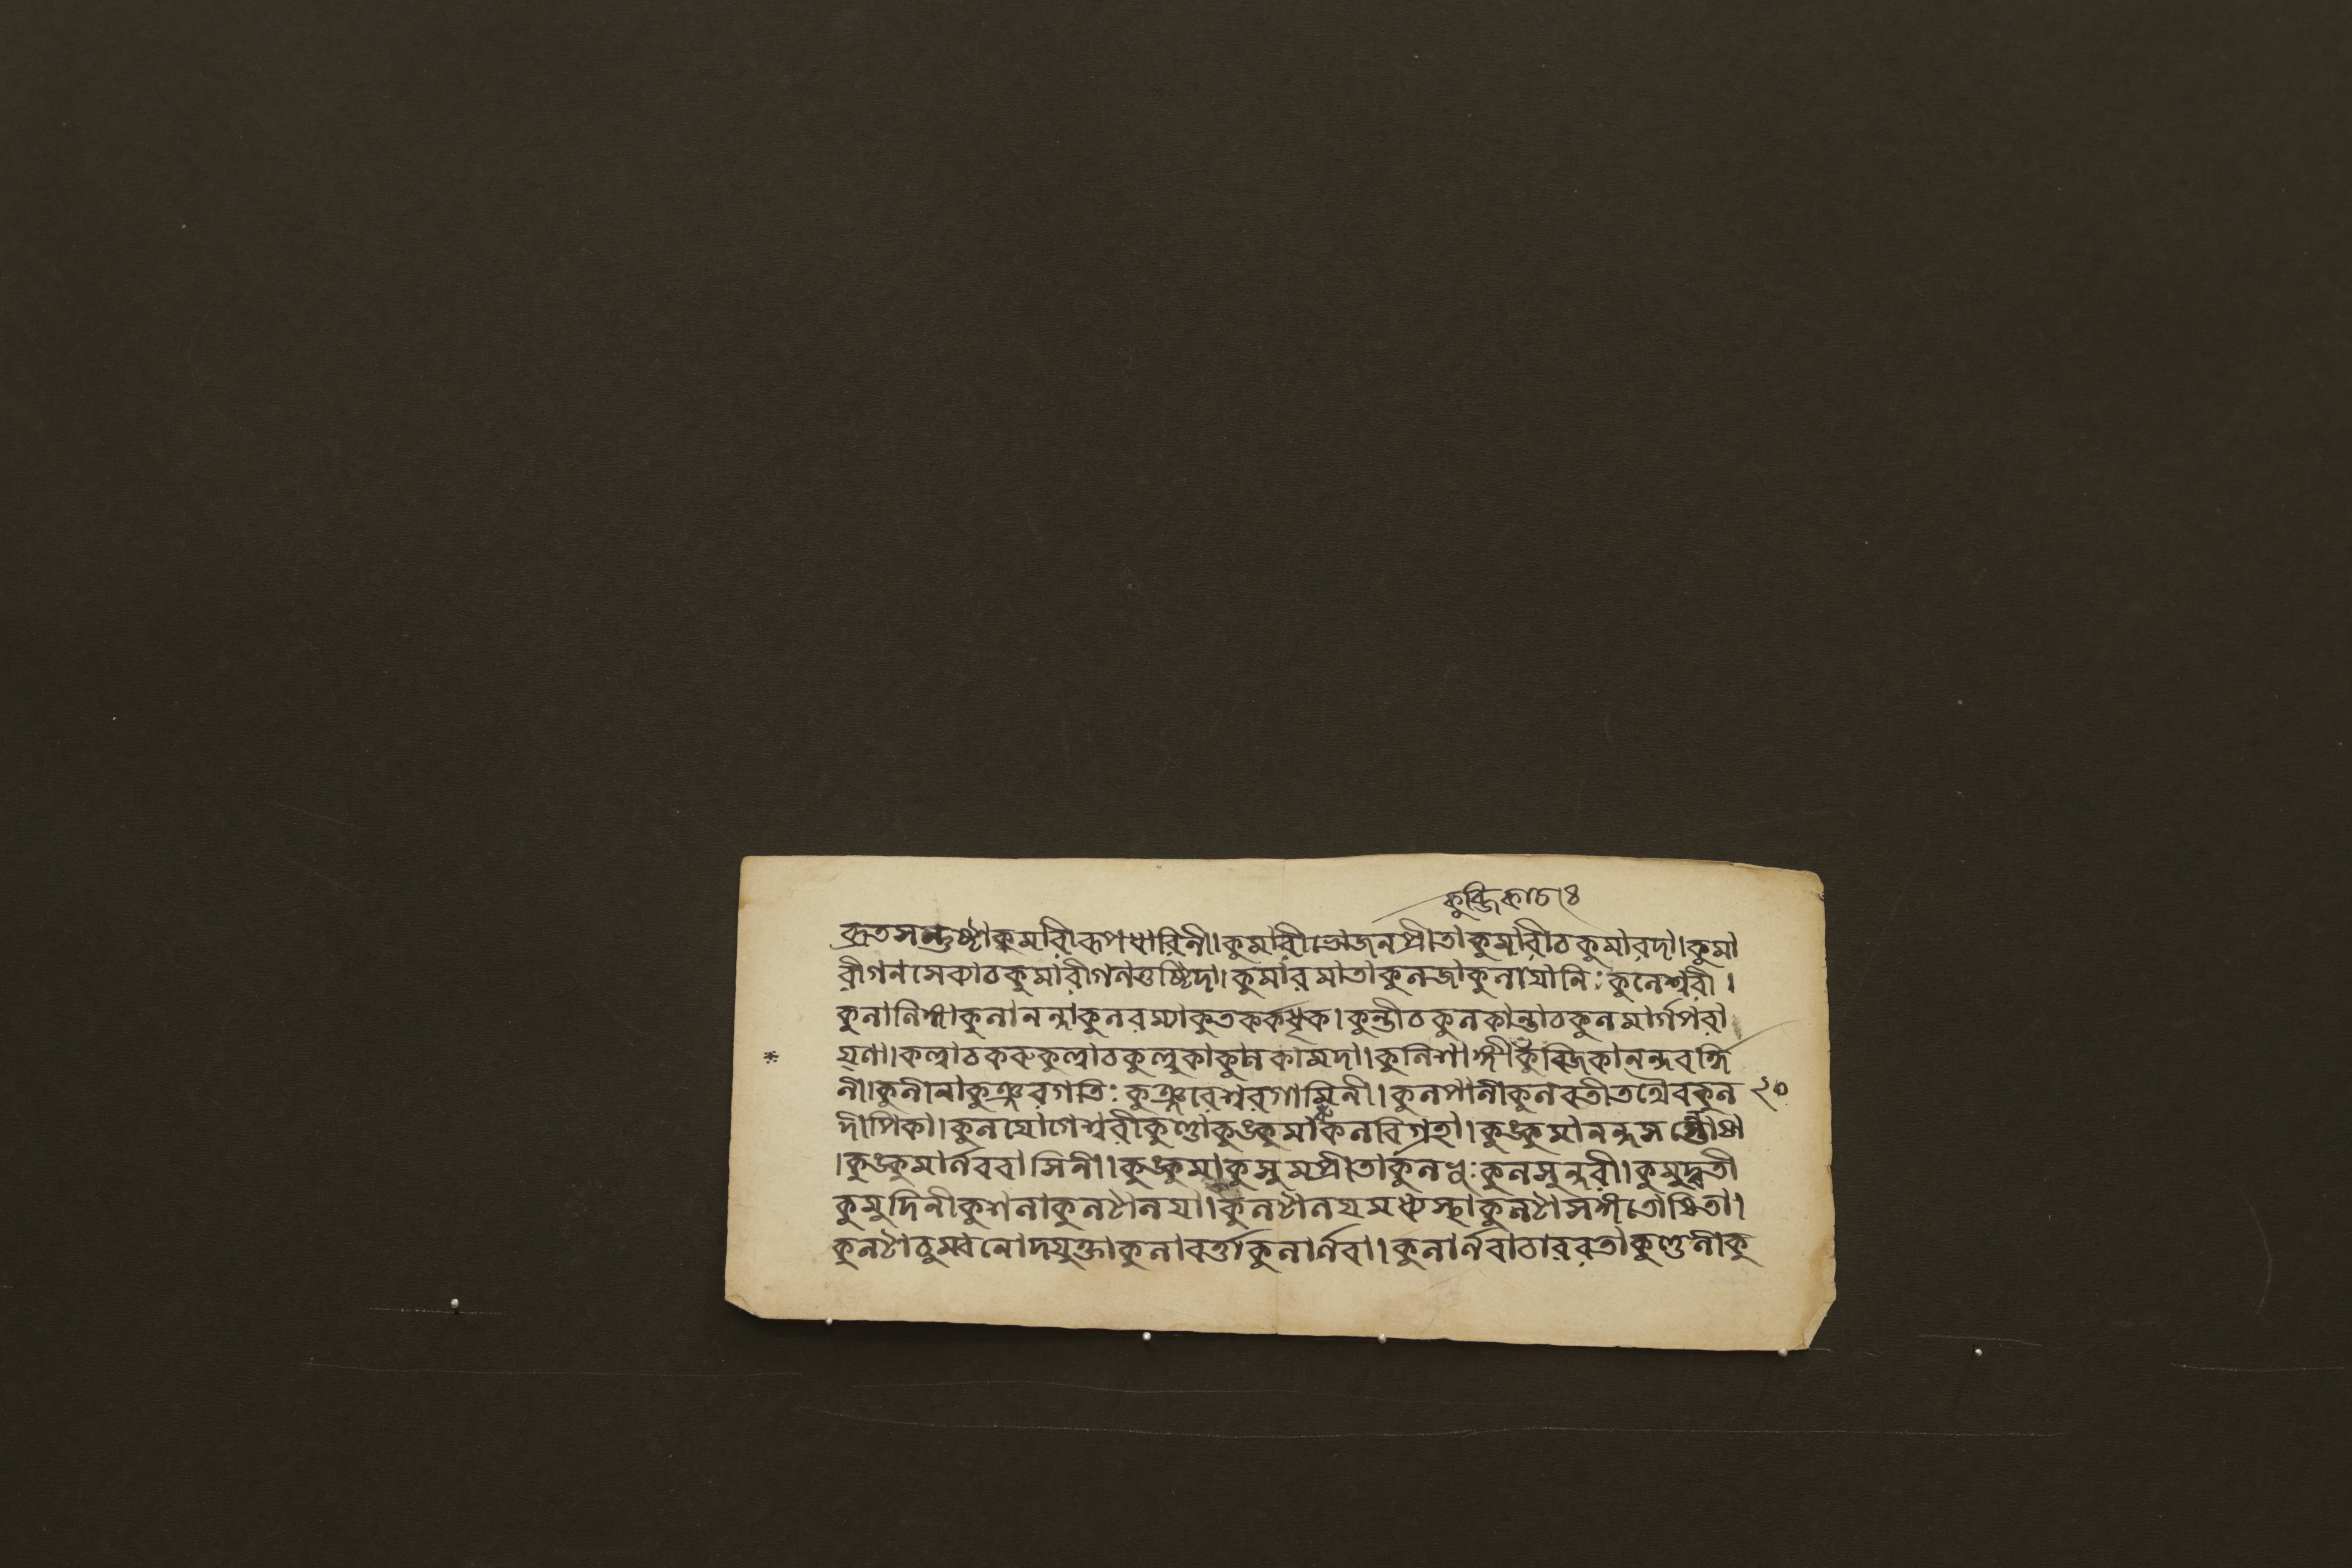 কুব্জিকাচেঃ
ব্রতসন্তুষ্টাকুমরিারূপধারিনী।কুমারীভোজনপ্রীতাকুমারীচকুমারদা।কুমা
রীগনসেব্যাচকুমারীগনতুষ্টিদা।কুমারমাতাকুনজাকুনাযোনিঃকুনেশ্বরী।
কুনানিঙ্গাকুনানন্দাকুনরম্যাকুতর্কধৃক।কুন্তীচকুনকান্তাচকুনমার্গপরা
য়ণা।কল্লাচকরুকুল্লাচকুল্লুকাকুনকামদা।কুনিশাঙ্গীকুব্জিকানন্দবর্দ্ধি
নী।কুনীনাকুঞ্জরগতিঃকুঞ্জরেশ্বরগামিনী।কুনপানীকুনবতীতথৈবকুন ২০
দীপিকা।কুনযোগেশ্বরীকুণ্ডাকুঙ্কুমাকনবিগ্রহা।কুঙ্কুমানন্দসন্তোষা
।কুঙ্কুমার্নববাসিনী।কুঙ্কুমাকুসুমপ্রীতাকুনধুঃকুনসুন্দরী।কুমুদ্বতী
কুমুদিনীকুশনাকুনটানযা।কুনটানযমধ্যস্থাকুনটাসঙ্গতোষিতা।
কুনটাচুম্বনোদযুক্তাকুনাবর্ত্তাকুনার্নবা।কুনার্নবাচাররতাকুণ্ডনীকু